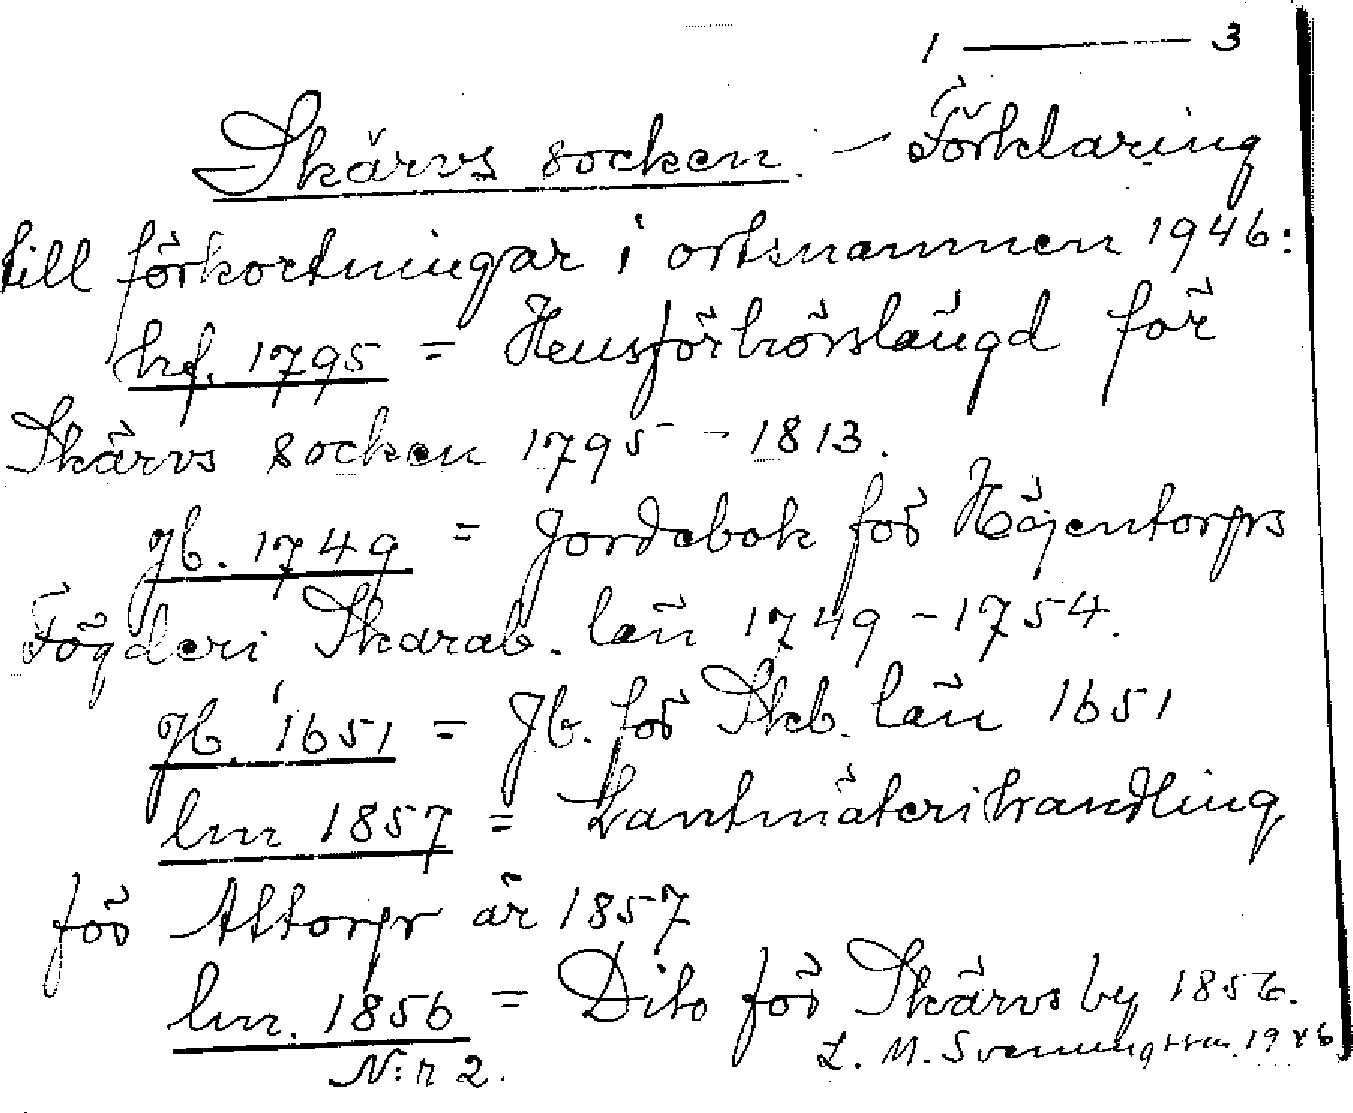 1 — 3
Skärvs socken – Förklaring
till förkortningar i ortsnamnen 1946:
hf. 1795 = Husförhörslängd för
Skärvs socken 1795 – 1813.
Jb. 1749 = Jordebok för Höjentorps
Fögderi Skarab. län 1749 – 1754.
Jb. 1651 = Jb. för Skb. län 1651
lm 1857 = Lantmäterihandling
för Altorp år 1857
lm. 1856 = Dito för Skärvs by 1856.
N:r 2. L. M. Svenungsson. 1946